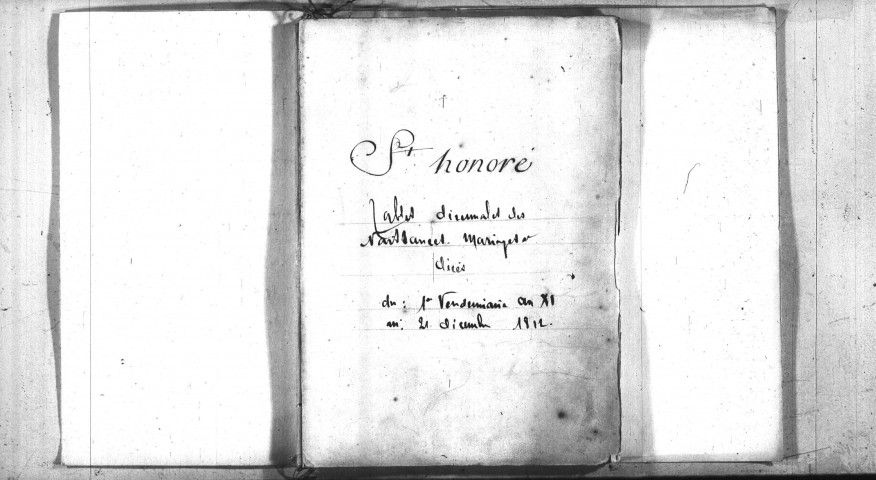 St honoré
Tables décennales des
Naissances. Mariages &
décès
du : 1er Vendemiaire an XI
au : 21 décembre 1812.